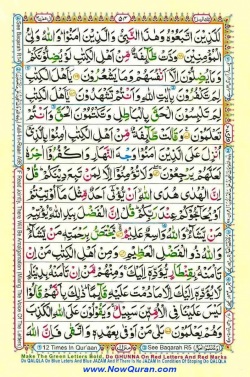 ٥٣
لَلَّذِيْنَ اتَّبَعُوْهُ وَهٰذَا النَّبِيُّ وَالَّذِيْنَ اٰمَنُوْا ؕ وَاللّٰهُ وَلِيُّ
الْمُؤْمِنِيْنَ وَدَّتْ طَّآئِفَةٌ مِّنْ اَهْلِ الْكِتٰبِ لَوْ يُضِلُّوْنَكُمْ ؕ
وَمَا يُضِلُّوْنَ اِلَّاۤ اَنْفُسَهُمْ وَمَا يَشْعُرُوْنَ يٰۤاَهْلَ الْكِتٰبِ
لِمَ تَكْفُرُوْنَ بِاٰيٰتِ اللّٰهِ وَاَنْتُمْ تَشْهَدُوْنَ يٰۤاَهْلَ الْكِتٰبِ
لِمَ تَلْبِسُوْنَ الْحَقَّ بِالْبَاطِلِ وَتَكْتُمُوْنَ الْحَقَّ وَاَنْتُمْ
تَعْلَمُوْنَ وَقَالَتْ طَّآئِفَةٌ مِّنْ اَهْلِ الْكِتٰبِ اٰمِنُوْا بِالَّذِيْۤ
اُنْزِلَ عَلَى الَّذِيْنَ اٰمَنُوْا وَجْهَ النَّهَارِ وَاكْفُرُوْۤا اٰخِرَهٗ
لَعَلَّهُمْ يَرْجِعُوْنَ وَلَا تُؤْمِنُوْۤا اِلَّا لِمَنْ تَبِعَ دِيْنَكُمْ ؕ قُلْ
اِنَّ الْهُدٰى هُدَى اللّٰهِ ۙ اَنْ يُّؤْتٰۤى اَحَدٌ مِّثْلَ مَاۤ اُوْتِيْتُمْ
اَوْ يُحَآجُّوْكُمْ عِنْدَ رَبِّكُمْ ؕ قُلْ اِنَّ الْفَضْلَ بِيَدِ اللّٰهِ ۚ يُؤْتِيْهِ
مَنْ يَّشَآءُ ؕ وَاللّٰهُ وَاسِعٌ عَلِيْمٌ يَّخْتَصُّ بِرَحْمَتِهٖ مَنْ يَّشَآءُ ؕ
وَاللّٰهُ ذُو الْفَضْلِ الْعَظِيْمِ وَمِنْ اَهْلِ الْكِتٰبِ مَنْ اِنْ
تَاْمَنْهُ بِقِنْطَارٍ يُّؤَدِّهٖۤ اِلَيْكَ ۚ وَمِنْهُمْ مَّنْ اِنْ تَاْمَنْهُ بِدِيْنَارٍ
لَّا يُؤَدِّهٖۤ اِلَيْكَ اِلَّا مَا دُمْتَ عَلَيْهِ قَآئِمًا ؕ ذٰلِكَ بِاَنَّهُمْ قَالُوْا
لَيْسَ عَلَيْنَا فِي الْاُمِّيّٖنَ سَبِيْلٌ ۚ وَيَقُوْلُوْنَ عَلَى اللّٰهِ الْكَذِبَ
وَهُمْ يَعْلَمُوْنَ بَلٰى مَنْ اَوْفٰى بِعَهْدِهٖ وَاتَّقٰى فَاِنَّ اللّٰهَ
12 Times In Qur'aan
See Baqarah R5
Make The Green Letters Bold, Do GHUNNA On Red Letters And Red Marks
www.NowQuran.com